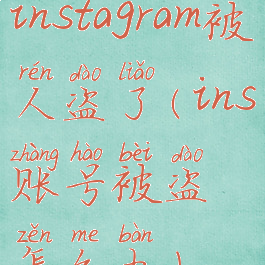 instagram被
rén dào liǎo
人盗了(ins
zhàng hào bèi dào
账号被盗
zěn me bàn
怎么办)